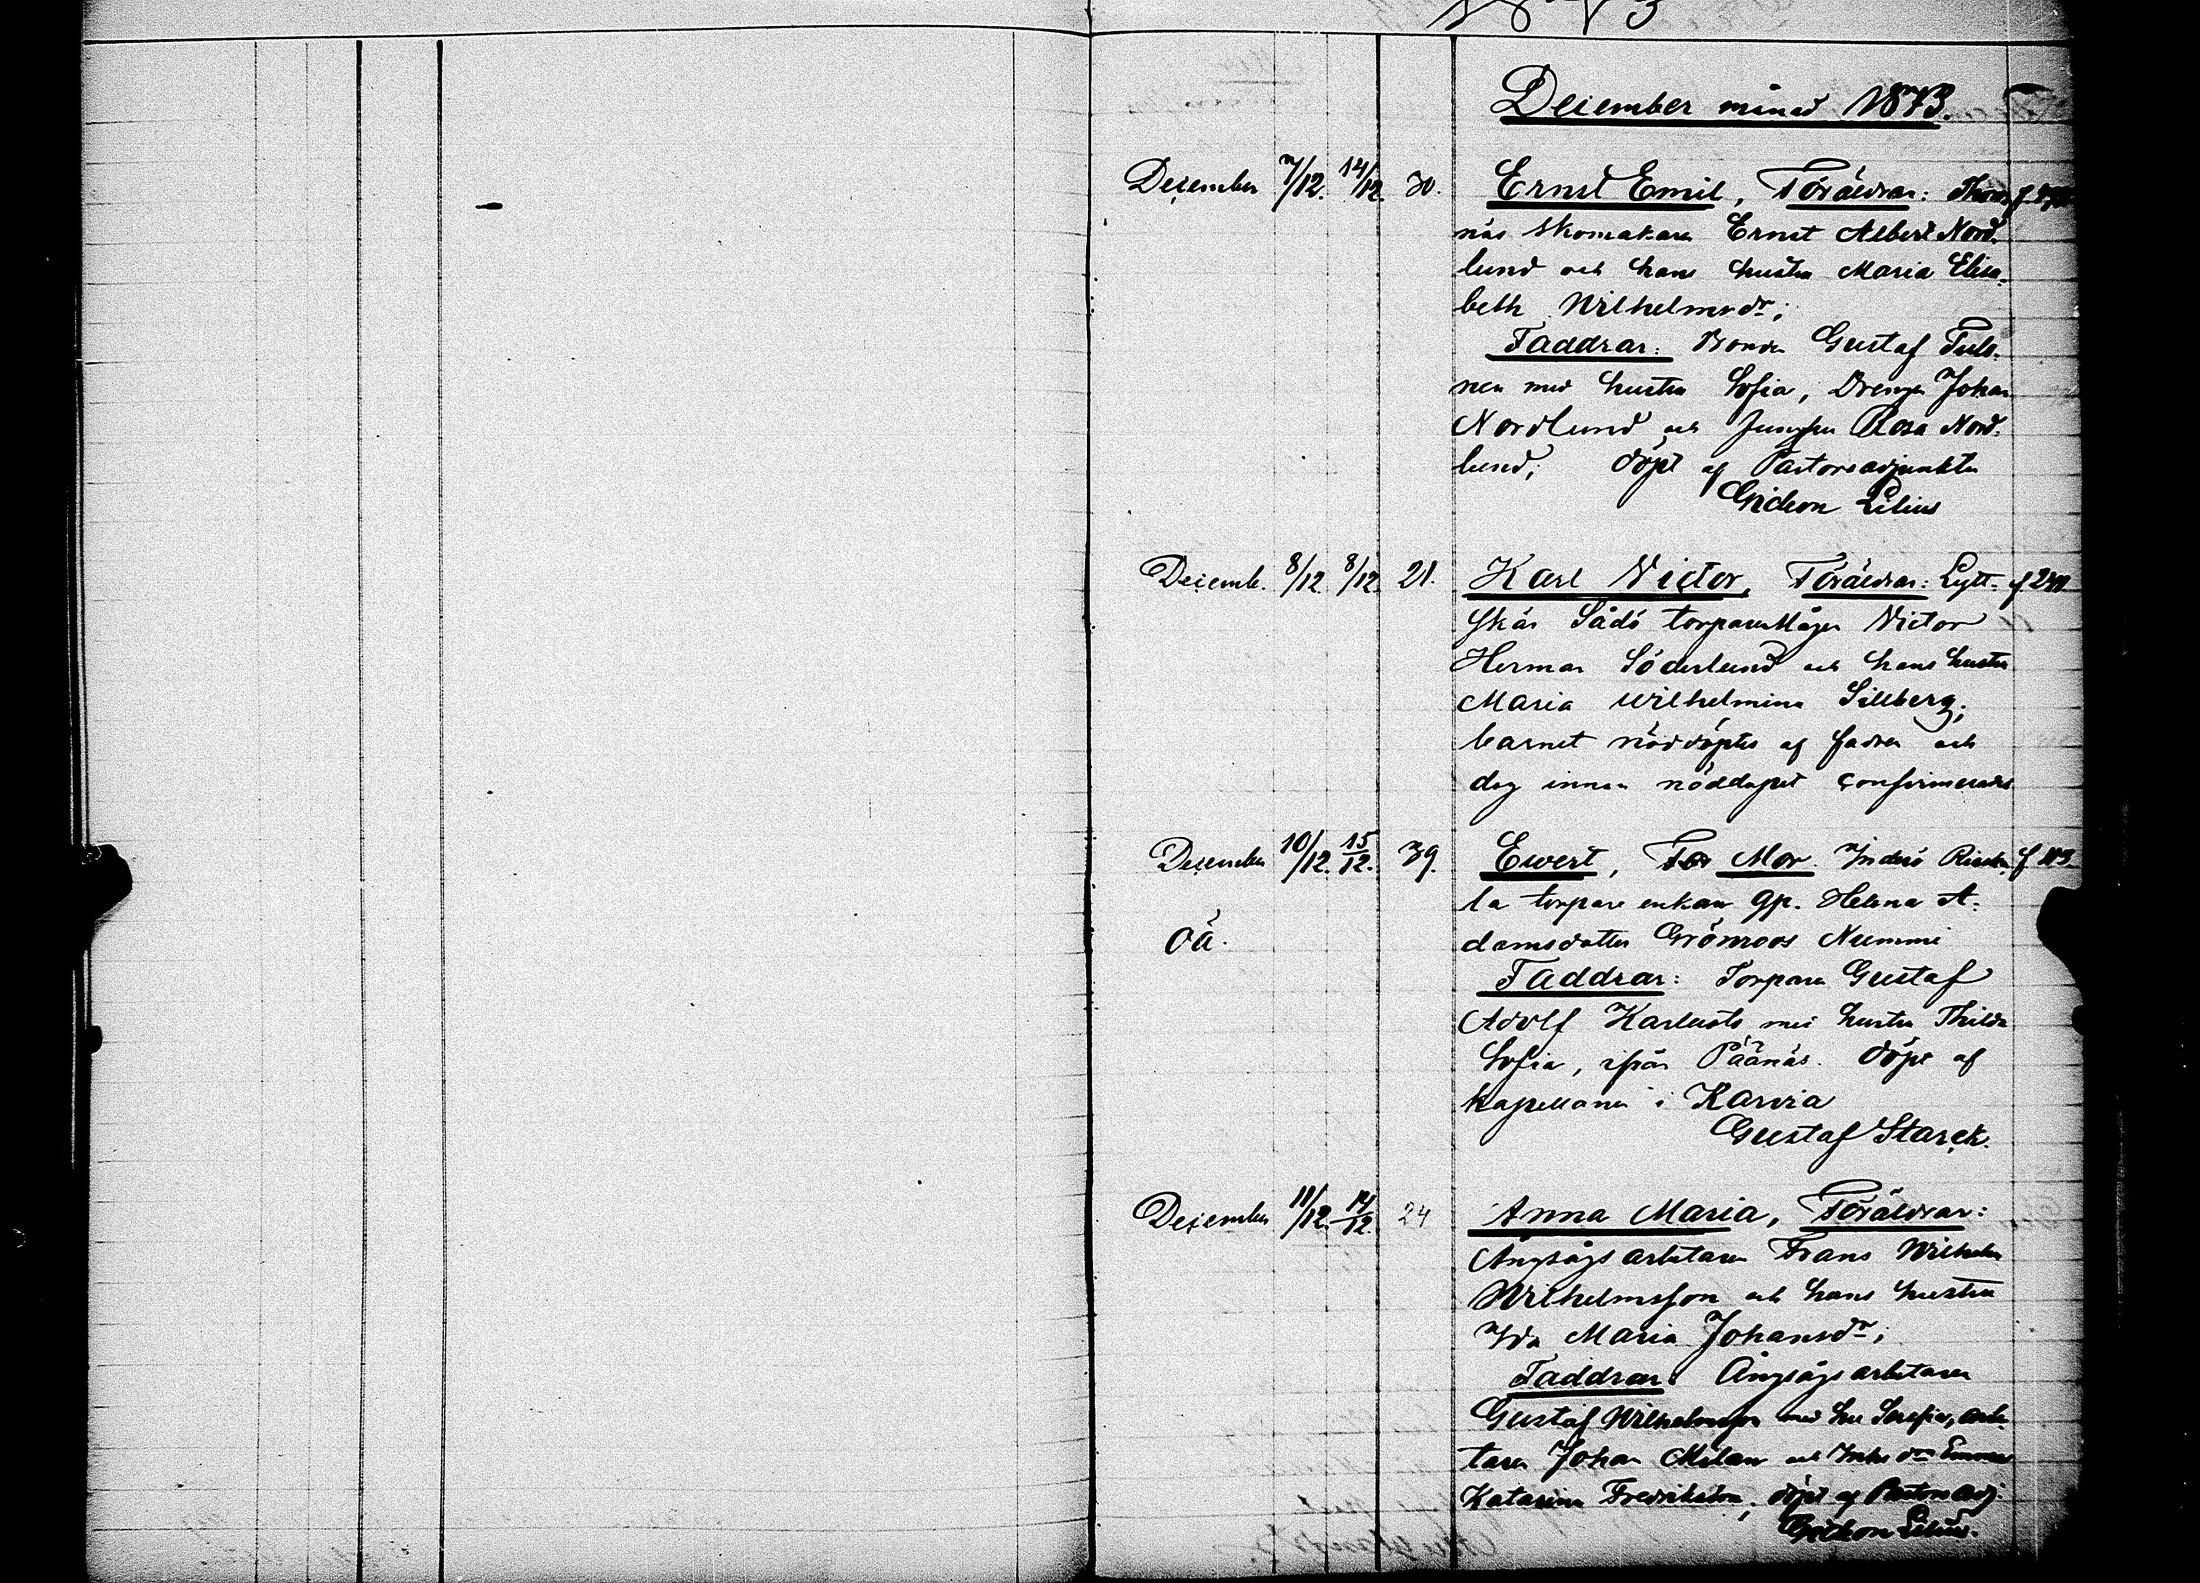 1873
December månad 1873.
December 7/12. 14/12. 30. Ernst Emil, Föräldrar:
näs skomakaren Ernst Albert Nord-
lund och hans hustru Maria Elisa-
beth Wilhelmsdr;
Faddrar: Bonden Gustaf
nen med hustru Sofia, Drengen Johan
Nordlund och Jungfru Rosa Nord-
lund; döpt af Pastorsadjunkten
Gideon Lilius
Decemb. 8/12 8/12. 21. Karl Victor, Föräldrar: Lytt-
skär Sådö torparemågen Victor
Herman Söderlund och hans hustru
Maria Wilhelmina Sillberg;
barnet nöddöptes af fadren och
dog innan nöddopet confirmerades
December 10/12. 15/12. 39. Ewert, Mor Inderö
la torpare enkan gp. Helena A-
damsdotter Grönroos Nummi
Faddrar: Torparen Gustaf
Adolf Karlqvist med hustru Thilda
Sofia, ifrån Påånäs. döpt af
kapellanen i Karvia
oä. Gustaf Starck.
December 11/12. 14/12. 24 Anna Maria, Föräldrar:
Ångsågsarbetaren Frans Wilhelm
Wilhelmsson och hans hustru
Ida Maria Johansdr;
Faddrar: Ångsågsarbetaren
Gustaf Wilhelmsson med hu Serafia, arbe-
taren Johan Milan och Emma
Katarina Fredriksdotter, döpt af Pastorsadj
Gideon Lilius.